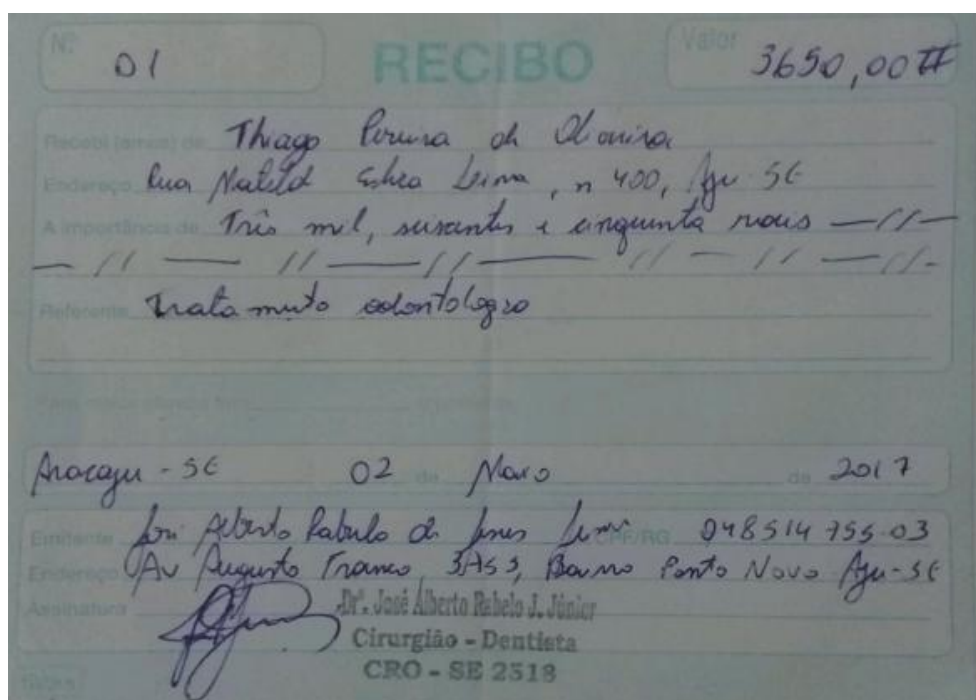 Nº 01 RECIBO Valor 3650,00
Recebi (emos) de Thiago Pereira de Oliveira
Endereço Rua Lima, n 400, Aju-SE
A importância de Três mil, seiscentos e cinquenta reais
Referente Tratamento odontologico
Aracaju - SE 02 de Maio de 2017
Emitente José Alberto Rabelo de Jesus Junior CPF/RG 948514755-03
Endereço Av Augusto Franco, Bairro Ponto Novo Aju-SE
Assinatura Drº. José Alberto Rabelo J. Júnior
Cirurgião - Dentista
CRO - SE 2518